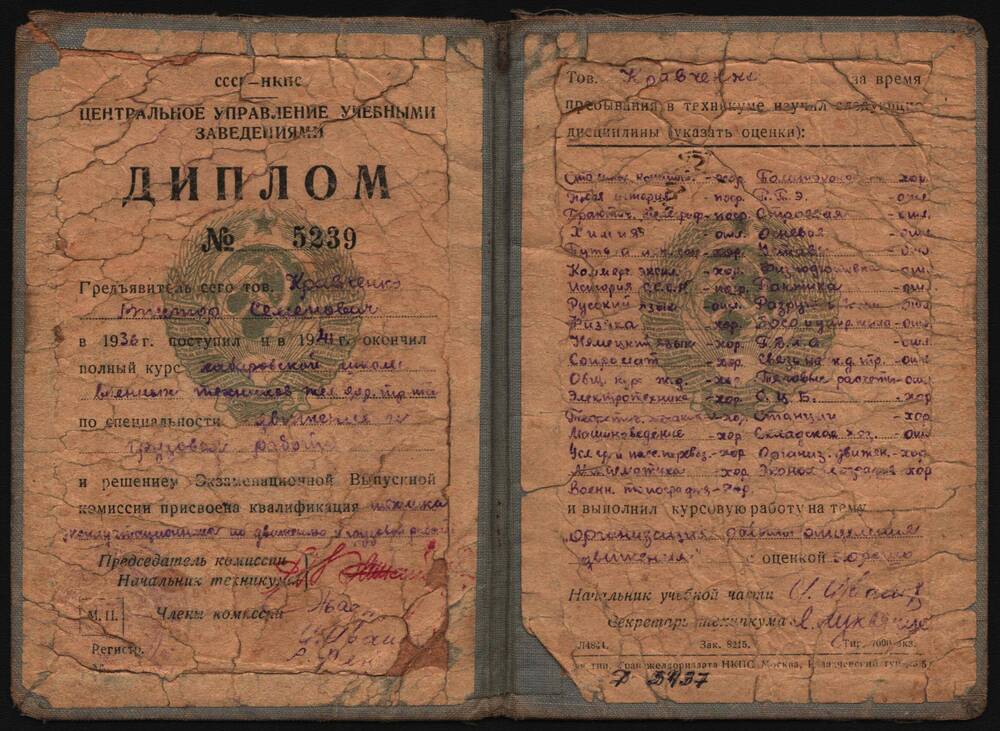 СССР—НКПС
ЦЕНТРАЛЬНОЕ УПРАВЛЕНИЕ УЧЕБНЫМИ
ЗАВЕДЕНИЯМИ
ДИПЛОМ
№ 5239
Предъявитель сего тов. Кравченко
Виктор Семенович
в 1936 г. поступил и в 1941 г. окончил
полный курс
военных техников жел. дор. тр-та
по специальности движения и
грузовой работы
и решением Экзаменационной Выпускной
комиссии присвоена квалификация техника
эксплуатационника по движению и грузовой работе
Председатель комиссии
Начальник техникума
М. П. Члены комиссии
Регистр.
№
Тов. Кравченко за время
пребывания в техникуме изучил следующие
дисциплины (указать оценки):
- хор. - хор.
Новая история - поср. П.Т.Э. - отл.
- поср. Строевая - отл.
Химия - отл. Огневая - отл.
- хор. Уставы - отл.
Коммерч. экспл. - хор. Физподготовка - отл.
История С.С.С.Р. - поср. Тактика - отл.
Русский язык - отл.
Физика - хор. - отл.
Немецкий язык - хор. - отл.
Сопромат - хор. Связь на ж.д. тр. - отл.
Общ. курс ж.д. - хор. Тяговые расчеты - отл.
Электротехника - хор. С.Ц.Б. - хор.
- хор. Станции - хор
Машиноведение - хор. Складское хоз. - отл
- хор Организ. движен. - хор.
Математика - хор. Эконом. география - хор
Воен. топография - хор.
и выполнил курсовую работу на тему
организация работы отделения
движения с оценкой хорошо
Начальник учебной части
Секретарь техникума
Л4824. Зак. 8215. Тир. 7000 экз.
тип. Трансжелдориздата НКПС. Москва,